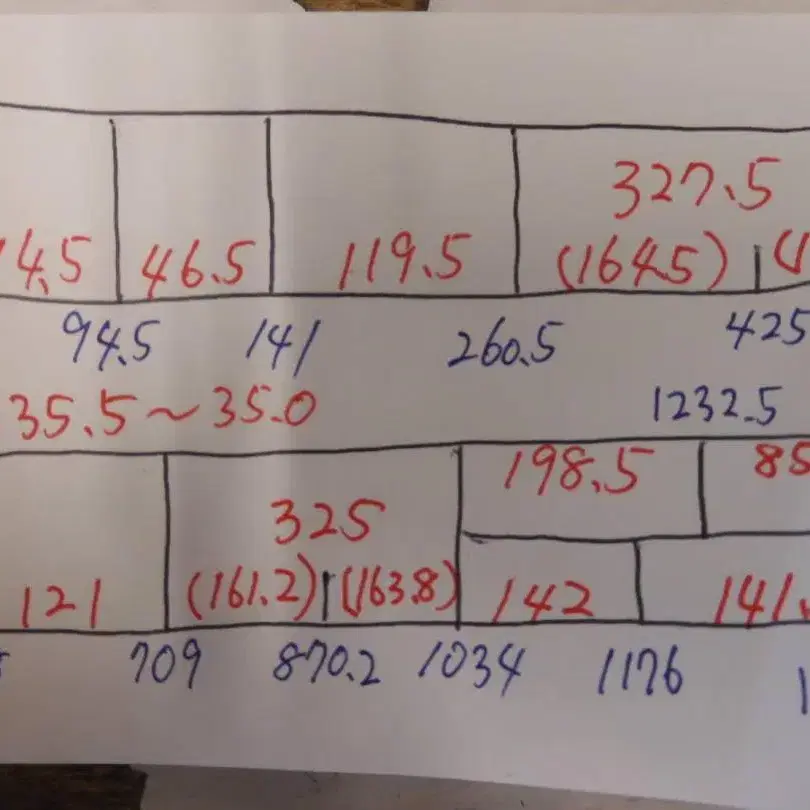 327.5
4.5 46.5 119.5 (164.5) (1
94.5 141 260.5 425
35.5~35.0 1232.5
198.5 85
325
121 (161.2) (163.8) 142 141.
709 870.2 1034 1176 1